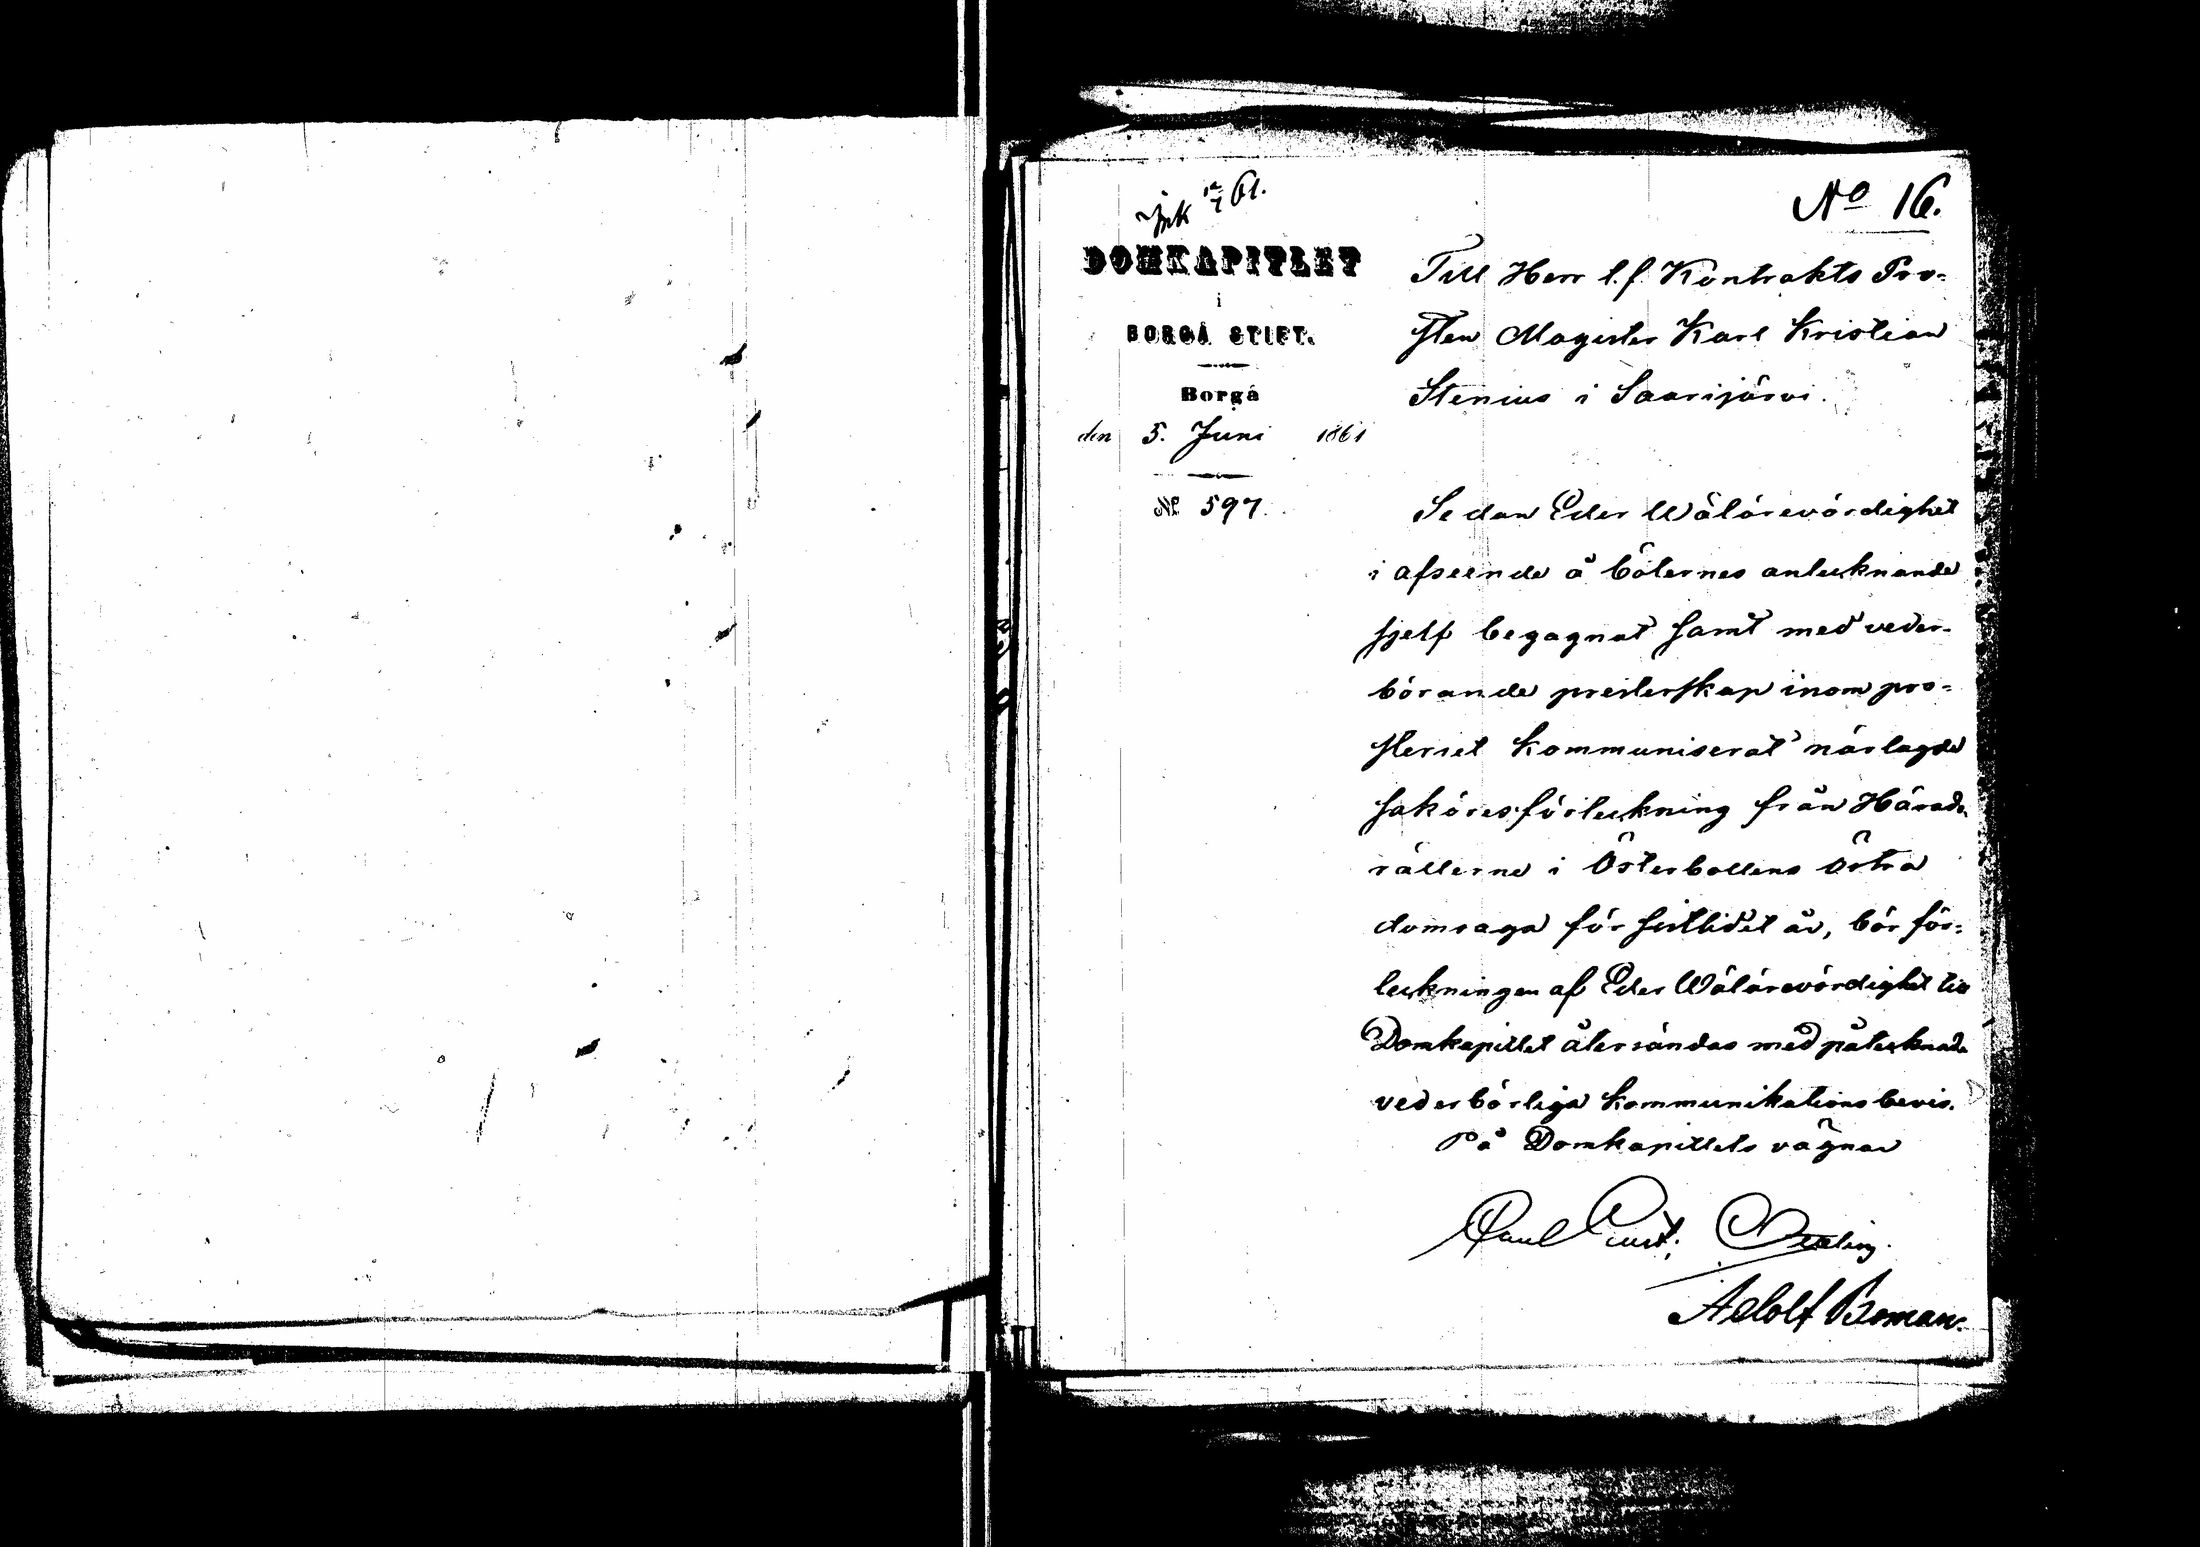 Ink 12/7 61.
No 16.
DOMKAPITLET
i
BORGÅ STIFT.
Borgå
den 5. Juni 1861
№ 597.
Till Herr t.f. Kontrakts Pro-
sten Magister Karl Kristian
Stenius i Saarijärvi.
Sedan Eder Wälärevördighet
i afseende å böternes antecknande
sjelf begagnat samt med veder-
börande presterskap inom pro-
steriet kommuniserat närlagde
saköresförteckning från Härads-
rätterne i Österbottens östra
domsaga för sistlidet år, bör för-
teckningen af Eder Wälärevördighet till
Domkapitlet återsändas med påtecknade
vederbörliga kommunikationsbevis.
På Domkapitlets vägnar
Adolf Boman.